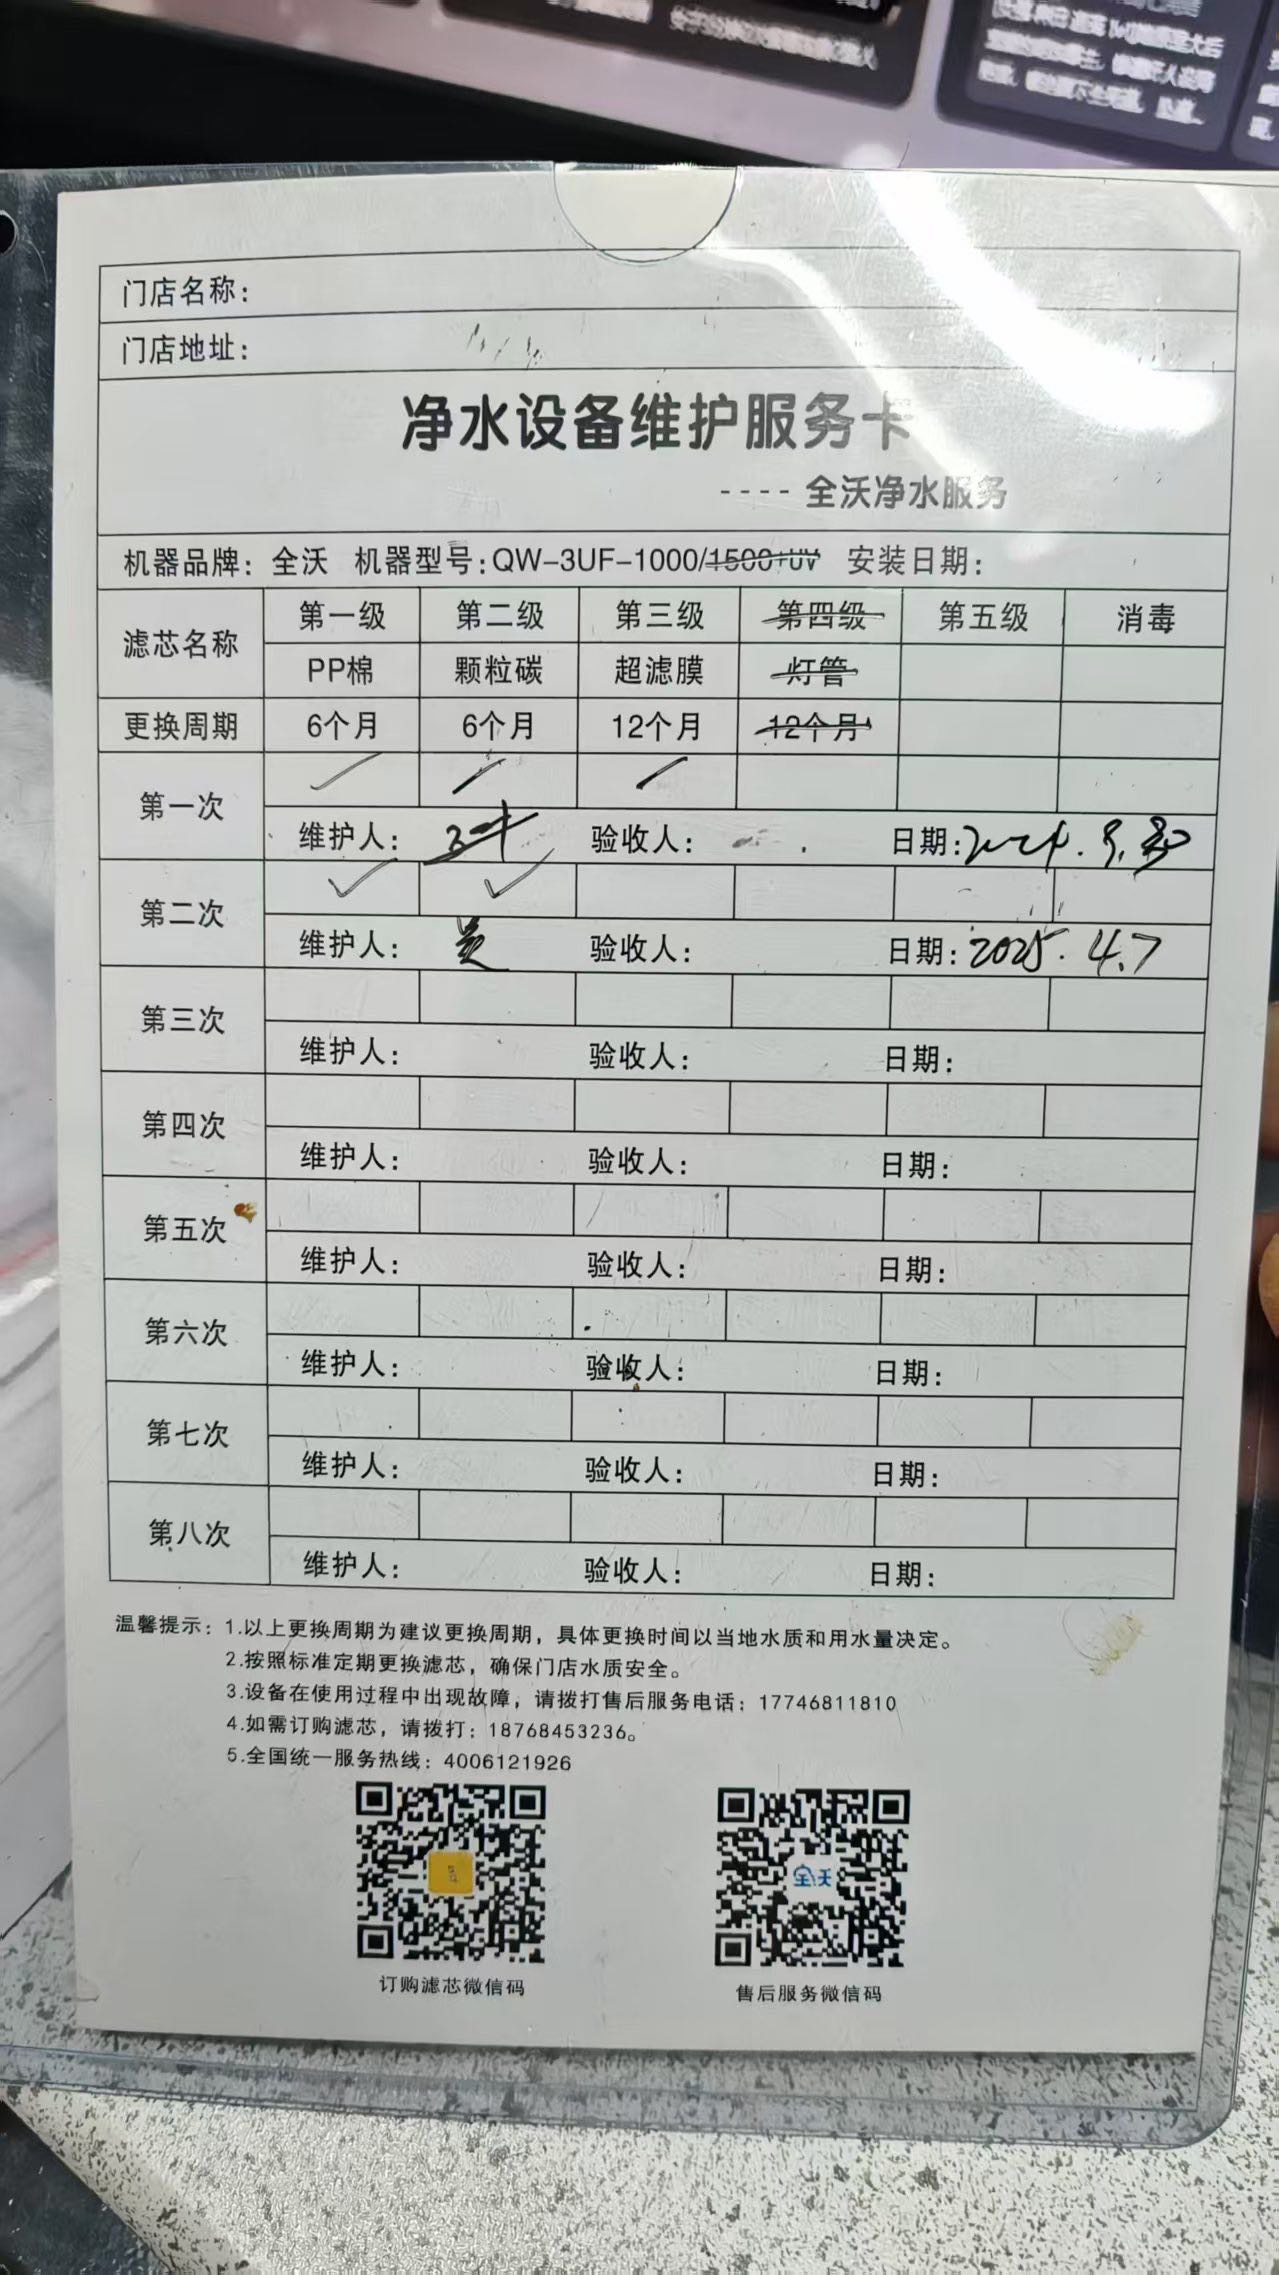 门店名称：
门店地址：
净水设备维护服务卡
---- 全沃净水服务
机器品牌：全沃 机器型号：QW-3UF-1000/1500+UV 安装日期：
滤芯名称 第一级 第二级 第三级 第四级 第五级 消毒
PP棉 颗粒碳 超滤膜 灯管
更换周期 6个月 6个月 12个月 12个月
第一次
维护人： 验收人： 日期：2024.9.
第二次 ✓ ✓
维护人： 验收人： 日期：2025.4.7
第三次
维护人： 验收人： 日期：
第四次
维护人： 验收人： 日期：
第五次
维护人： 验收人： 日期：
第六次
维护人： 验收人： 日期：
第七次
维护人： 验收人： 日期：
第八次
维护人： 验收人： 日期：
温馨提示：1.以上更换周期为建议更换周期，具体更换时间以当地水质和用水量决定。
2.按照标准定期更换滤芯，确保门店水质安全。
3.设备在使用过程中出现故障，请拨打售后服务电话：17746811810
4.如需订购滤芯，请拨打：18768453236。
5.全国统一服务热线：4006121926
全沃
订购滤芯微信码 售后服务微信码